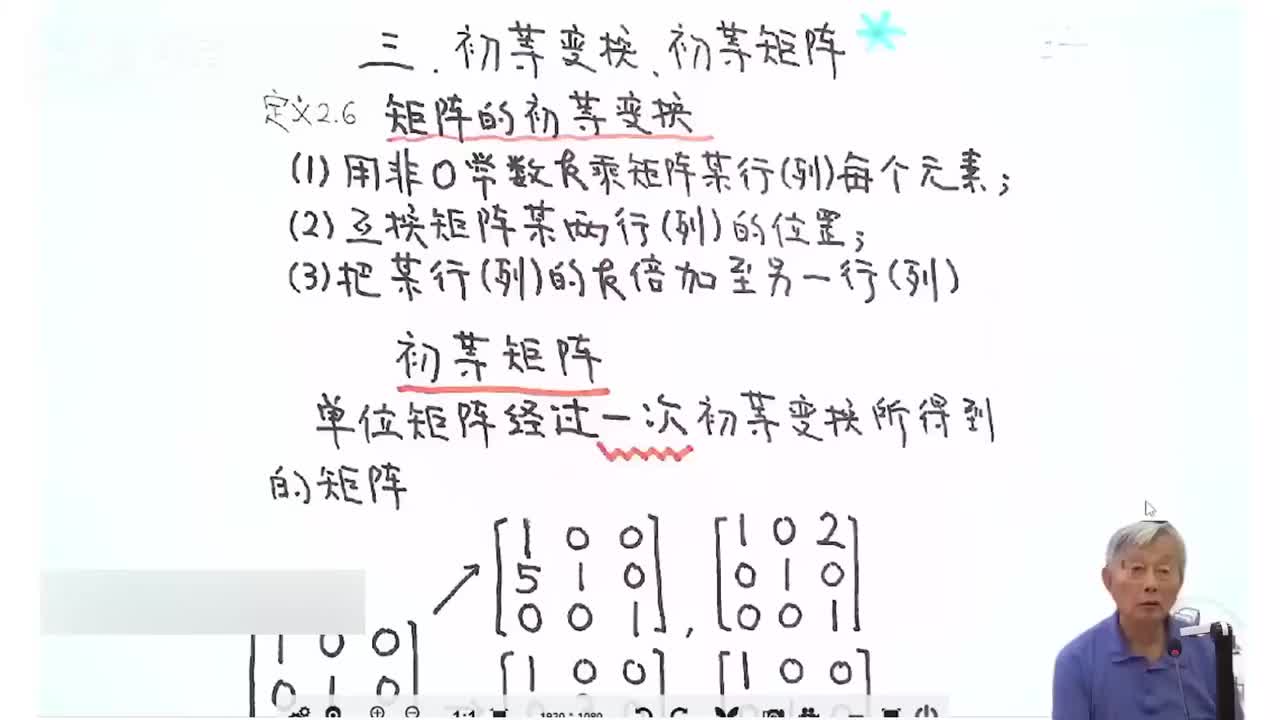 三、初等变换、初等矩阵
定义2.6 矩阵的初等变换
(1) 用非0常数k乘矩阵某行(列)每个元素;
(2) 互换矩阵某两行(列)的位置;
(3) 把某行(列)的k倍加至另一行(列)
初等矩阵
单位矩阵经过一次初等变换所得到
的矩阵
1 0 0
5 1 0
0 0 1 ,
1 0 2
0 1 0
0 0 1
1 0 0
0 1 0
1 0 0
1 0 0
1:1
1920*1080